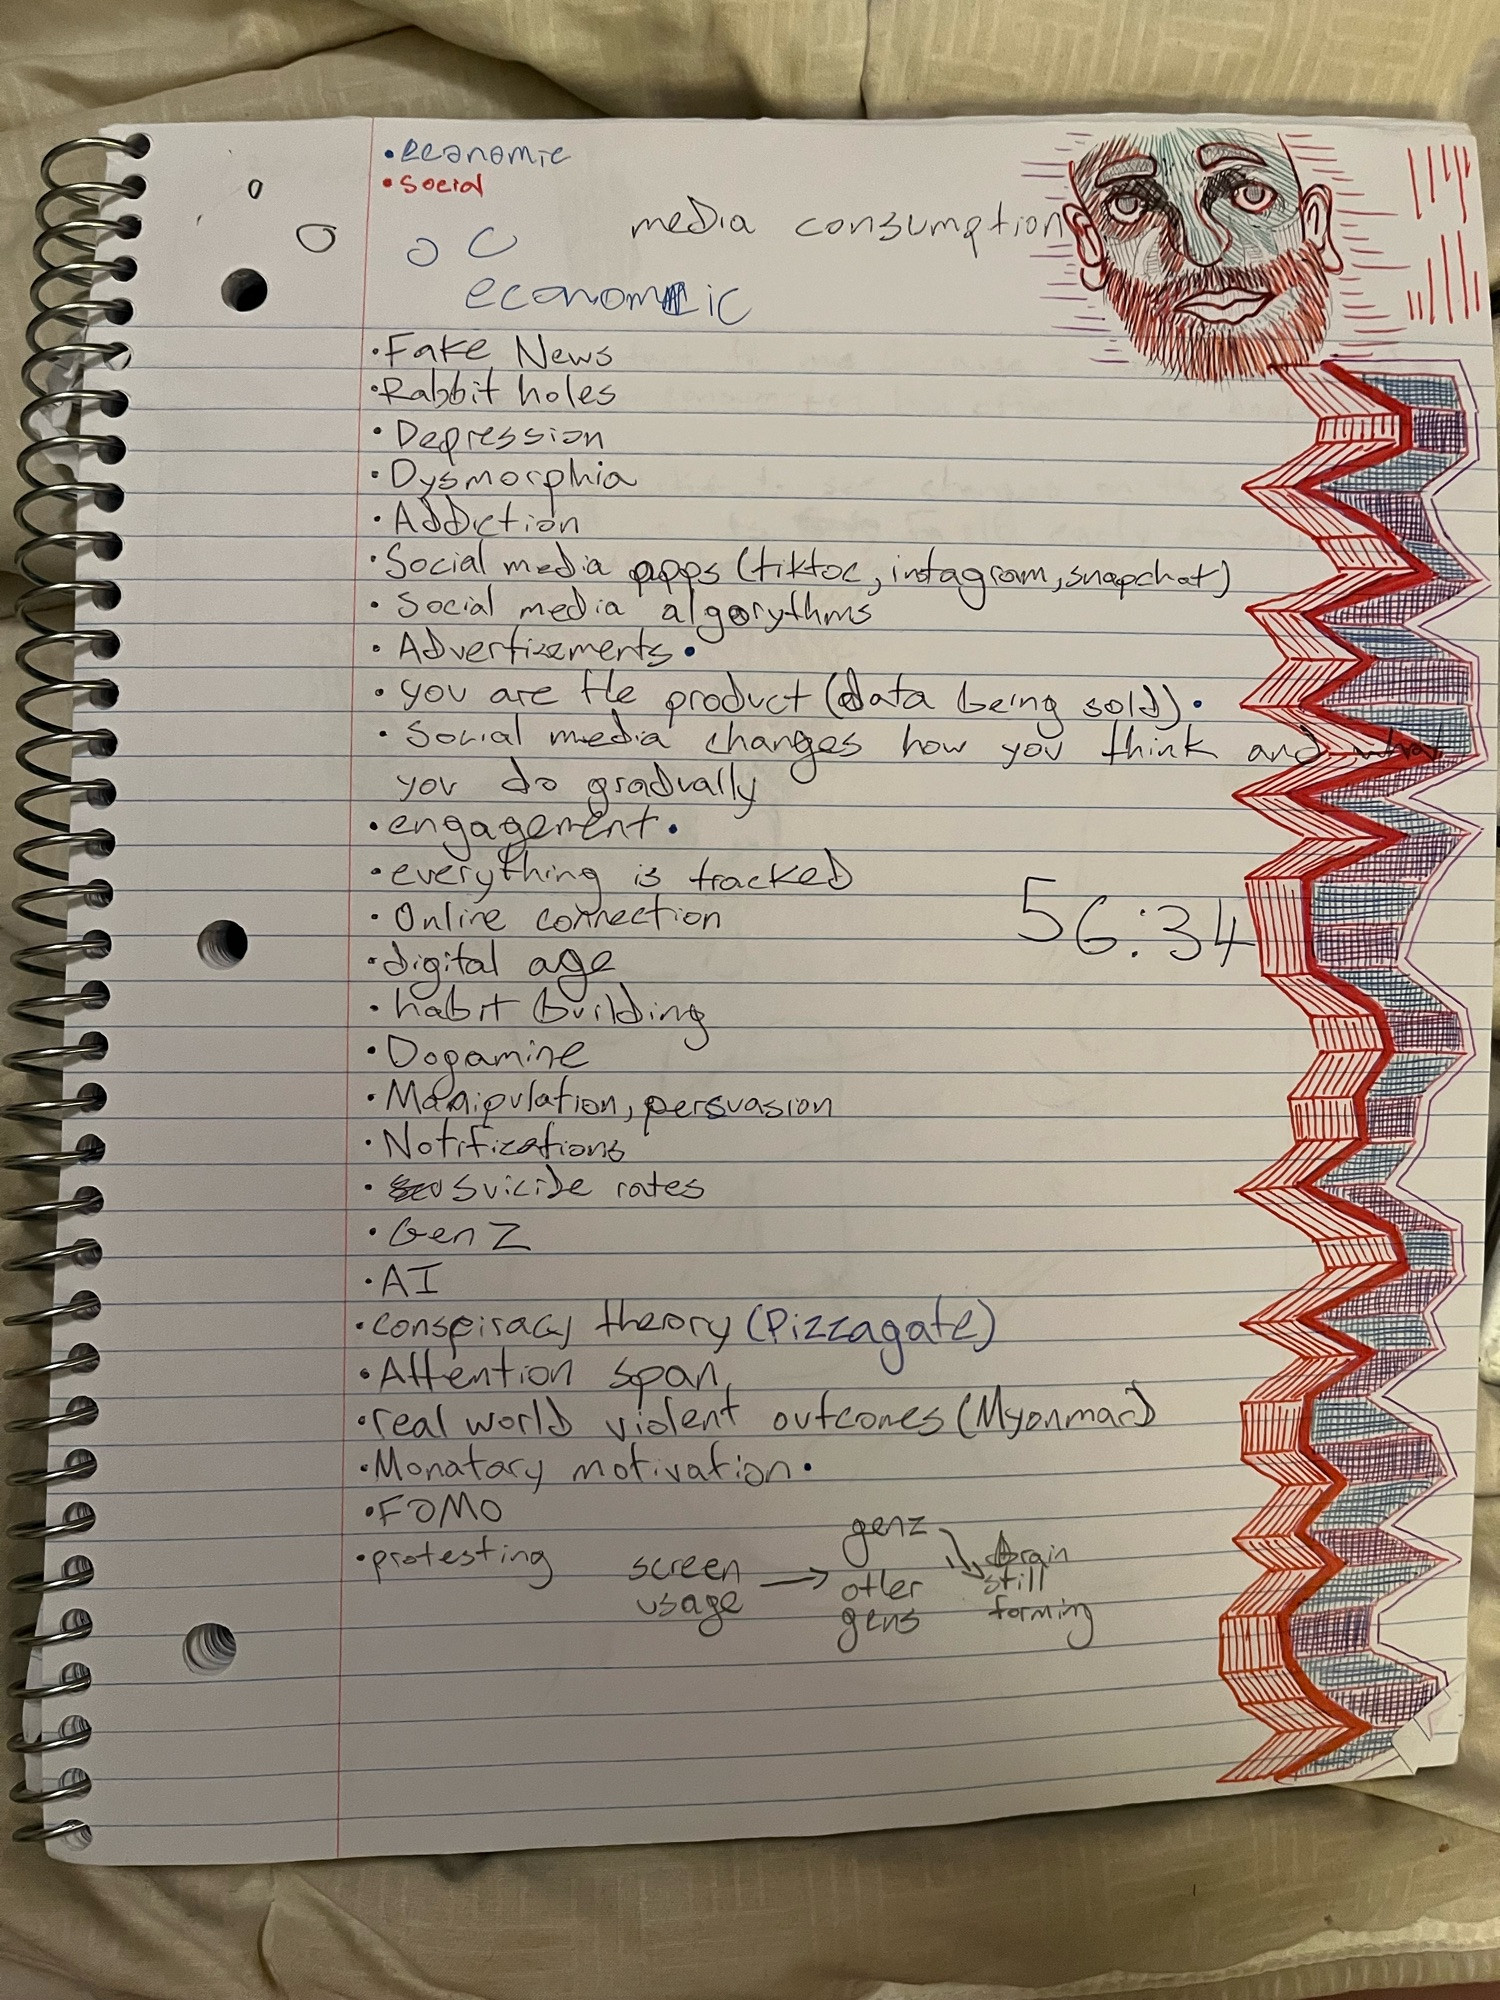 • economic
• social
media consumption
o C
economic
• Fake News
• Rabbit holes
• Depression
• Dysmorphia
• Addiction
• Social media apps (tiktoc, instagram, snapchat)
• Social media algorythms
• Advertizements •
• you are the product (data being sold) •
• Social media changes how you think and what
you do gradually
• engagement •
• everything is tracked
• Online connection
56:34
• digital age
• habit building
• Dopamine
• Manipulation, persuasion
• Notifications
• suicide rates
• Gen Z
• AI
• conspiracy theory (Pizzagate)
• Attention span
• real world violent outcomes (Myanmar)
• Monatary motivation •
• FOMO
• protesting
screen
usage →
genz
other
gens
brain
still
forming